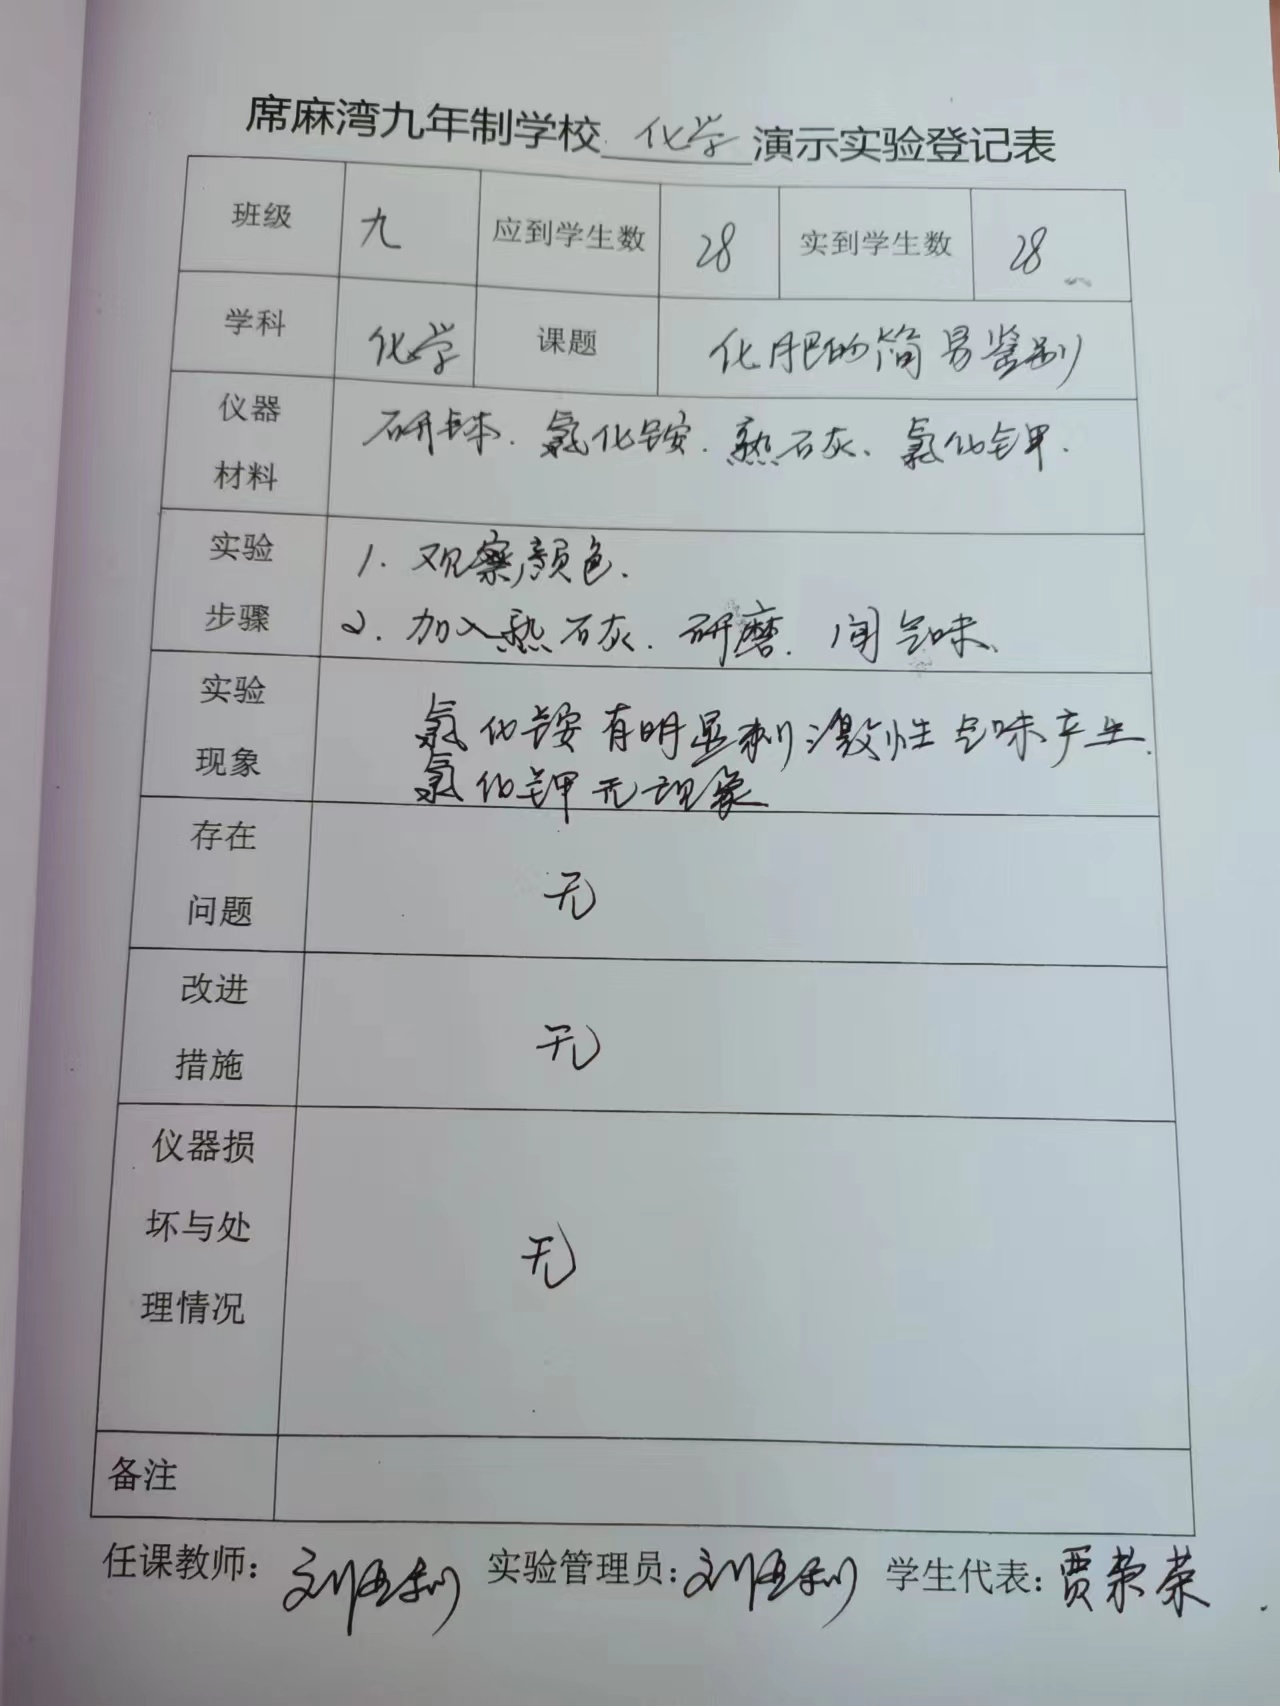 席麻湾九年制学校 化学 演示实验登记表
班级 九 应到学生数 28 实到学生数 28
学科 化学 课题 化肥的简易鉴别
仪器 研钵、氯化铵、熟石灰、氯化钾.
材料
实验 1. 观察颜色.
步骤 2. 加入熟石灰、研磨、闻气味、
实验 氯化铵有明显刺激性气味产生.
现象 氯化钾无现象
存在 无
问题
改进 无
措施
仪器损
坏与处 无
理情况
备注
任课教师： 实验管理员： 学生代表：贾荣荣